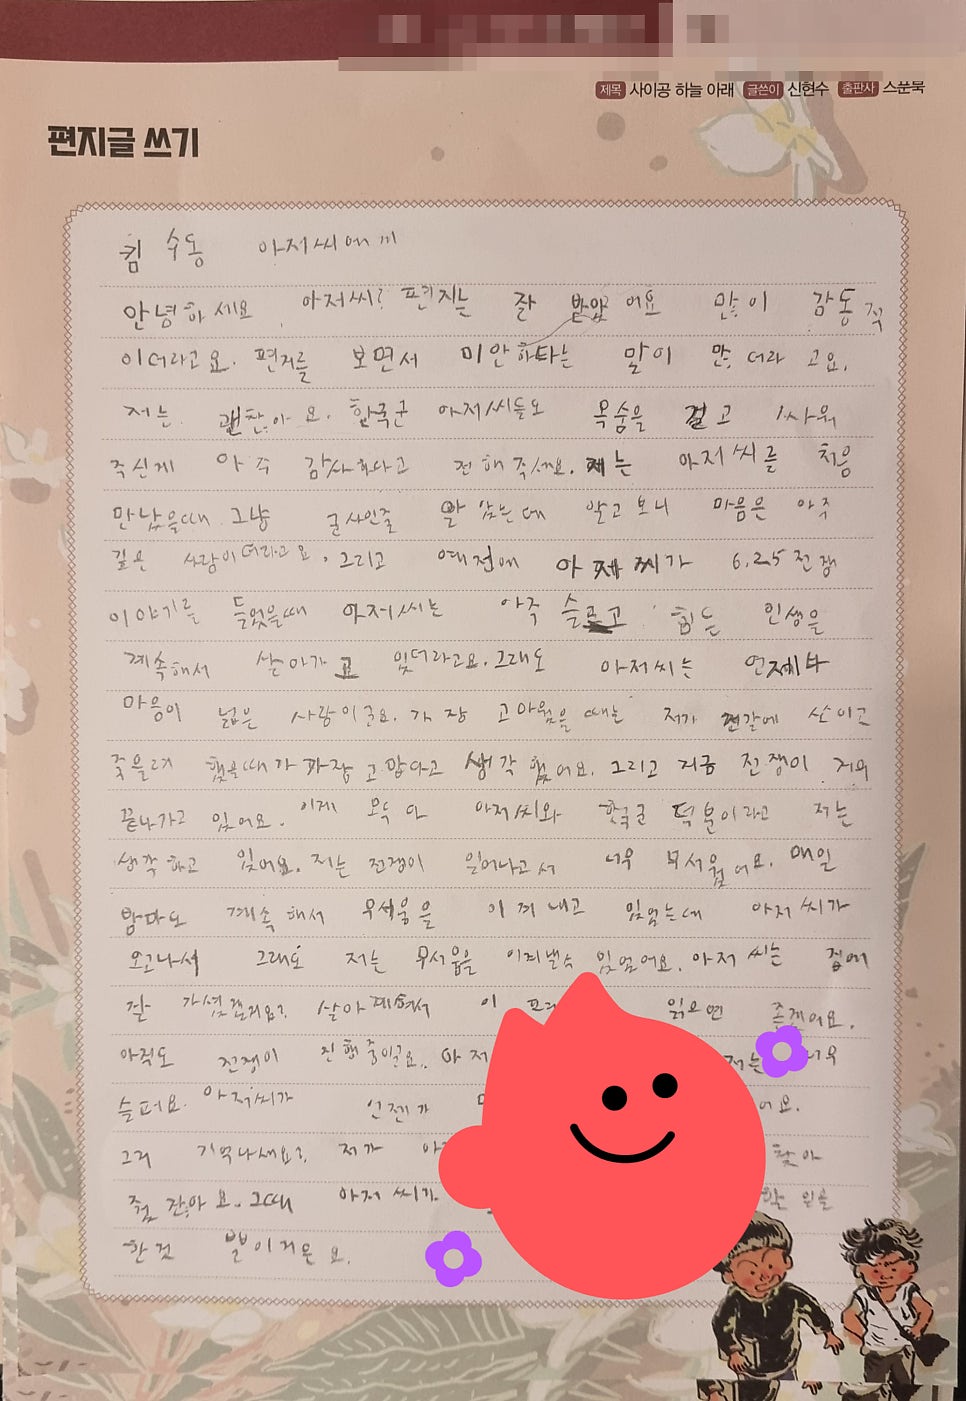 제목 사이공 하늘 아래 글쓴이 신현수 출판사 스푼북
편지글 쓰기
킴 수동 아저씨에게
안녕하세요 아저씨? 편지는 잘 받았어요 많이 감동적
이더라고요. 편지를 보면서 미안하다는 말이 많더라고요.
저는 괜찮아요. 한국군 아저씨들도 목숨을 걸고 싸워
주신게 아주 감사하다고 전해주세요. 제는 아저씨를 처음
만났을때 그냥 군사인줄 알았는데 알고보니 마음은 아주
깊은 사람이더라고요. 그리고 예전에 아저씨가 6.25전쟁
이야기를 들었을때 아저씨는 아주 슬프고 힘든 인생을
계속해서 살아가고 있더라고요. 그래도 아저씨는 언제나
마음이 넓은 사람이군요. 가장 고마웠을 때는 저가 전갈에
죽을려 했을때가 가장 고맙다고 생각했어요. 그리고 지금 전쟁이 거의
끝나가고 있어요. 이게 모두 다 아저씨와 한국군 덕분이라고 저는
생각하고 있어요. 저는 전쟁이 일어나고서 너무 무서웠어요. 매일
밤마도 계속해서 무서움을 이겨내고 있었는데 아저씨가
오고나서 그래도 저는 무서움을 이겨낼수 있었어요. 아저씨는 집에
잘 가셨겠지요? 살아계셔서 이 읽으면 좋겠어요.
아직도 전쟁이 진행중이군요. 아저 저는 너무
슬퍼요. 아저씨가 언젠가 어요.
그거 기억나세요? 저가 찾아
줬잖아요. 그때 아저씨가
한것 뿐이거든요.